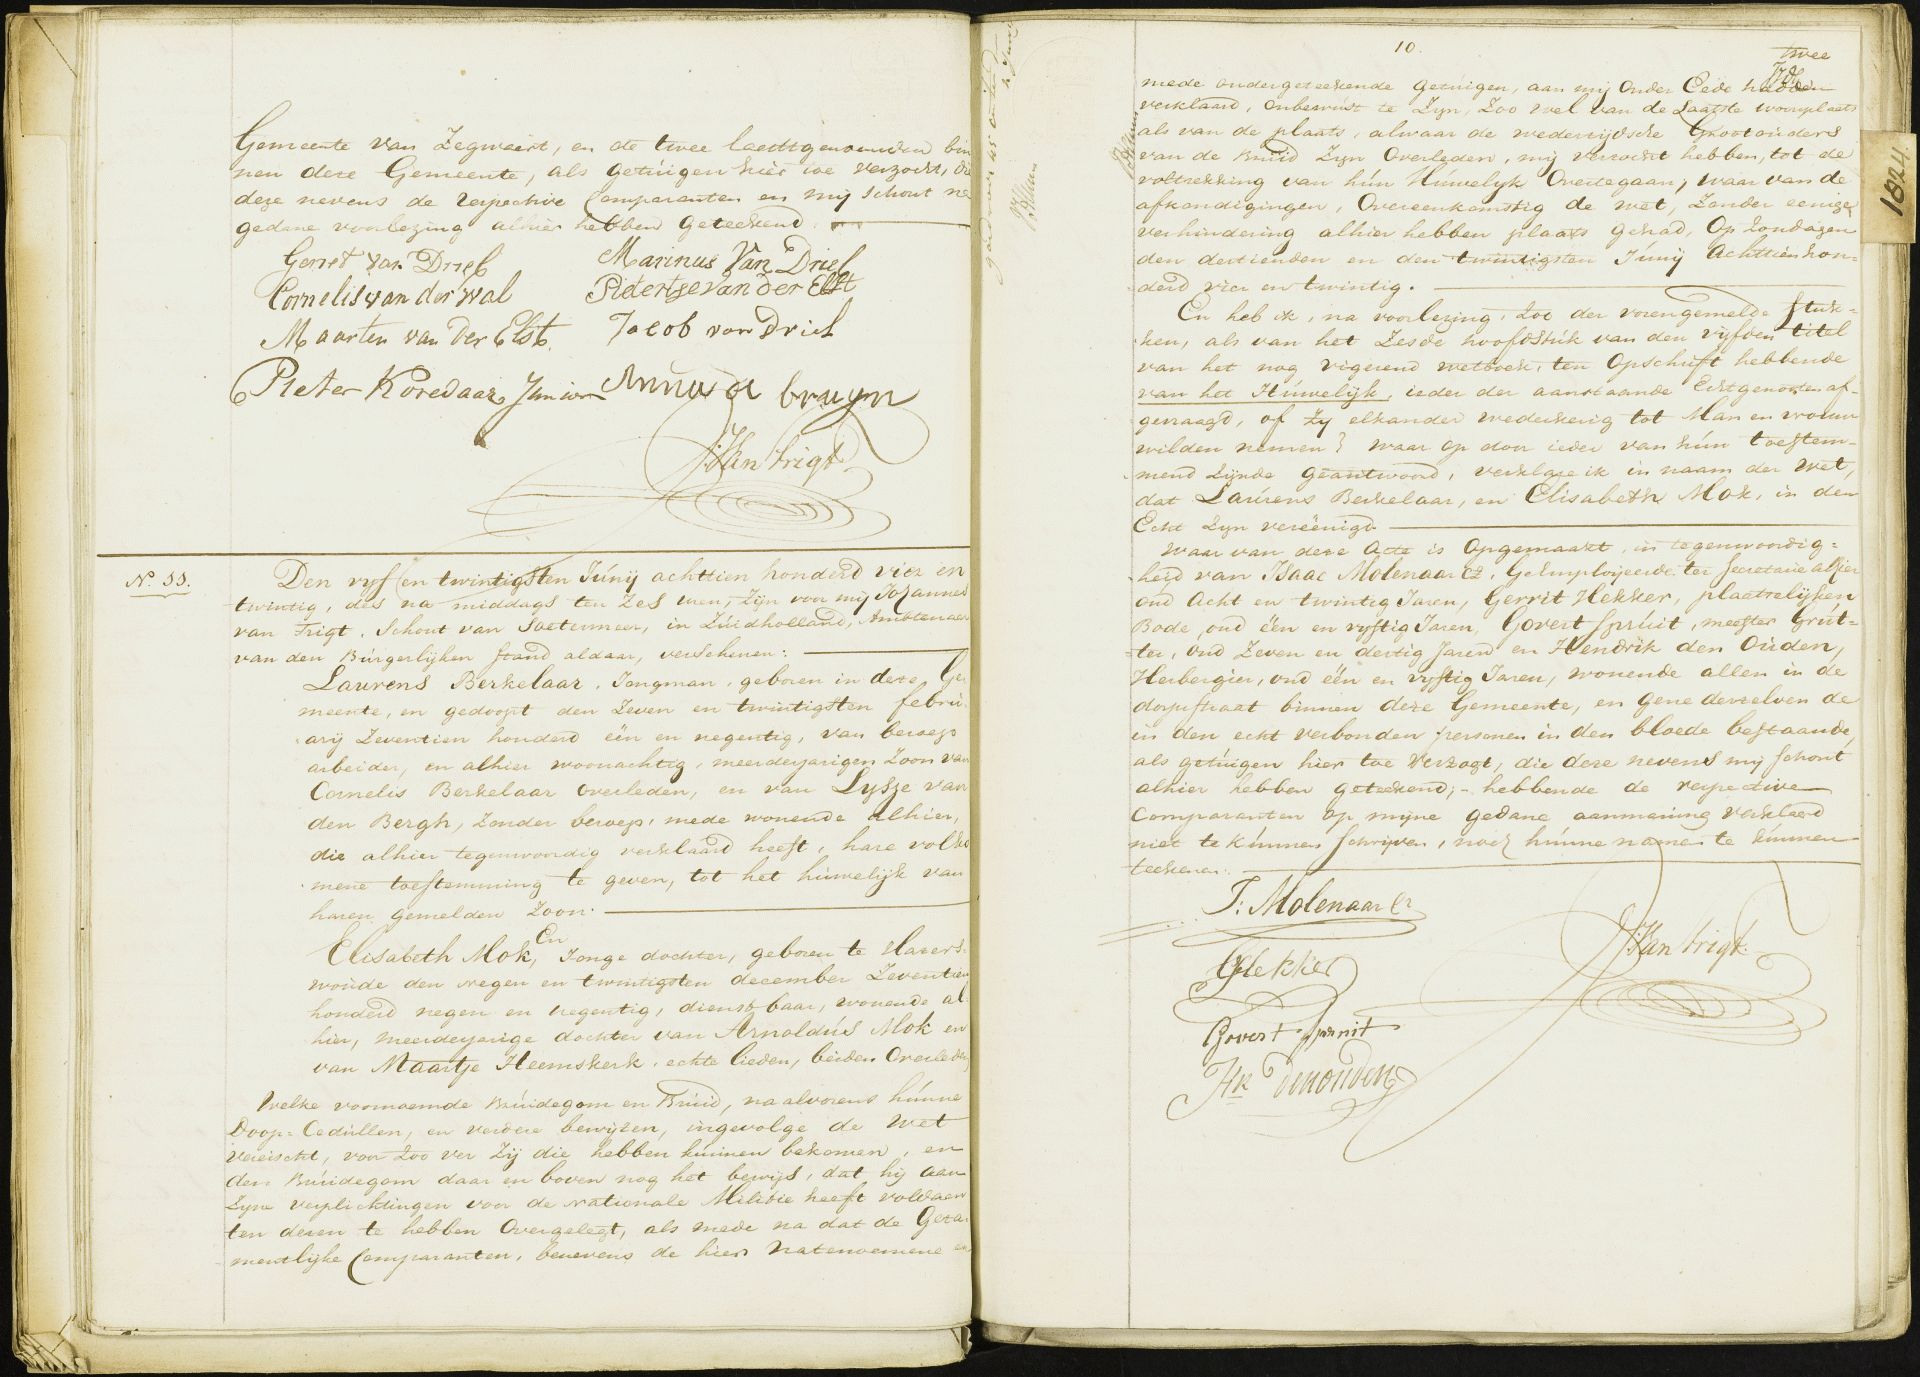 Gemeente van Zegwaert, en de twee laetstgenoemden bin
nen deze Gemeente, als getúigen hier toe verzocht, die
deze nevens de respective Comparanten en mij Schout na
gedane voorlezing alhier hebben geteekend.
Gerret van Driel
Marinus Van Driel
Cornelis van der wal
Pietertje van der Elst
Maarten van der Elst.
Jacob van Driel
Pieter Koredaaz Junior
bruyn
JVan trigt
No. 11.
Den vyf en twintigsten Júnij achttien honderd vier en
twintig, des na middags ten Zes uren, zijn voor mij Johannes
van Trigt, Schout van Soetermeer, in Zúidholland, Ambtenaar
van den Búrgerlijken stand aldaar, verschenen:
Laurens Berkelaar, Jongman, geboren in deze Ge
meente, en gedoopt den Zeven en twintigsten febrú
arij Zeventien honderd één en negentig, van beroep
arbeider, en alhier woonachtig, meerderjarigen Zoon van
Cornelis Berkelaar overleden, en van Lysje van
den Bergh, Zonder beroep, mede wonende alhier,
die alhier tegenwoordig verklaard heeft, hare volko
mene toestemming te geven, tot het húwelijk van
haren gemelden Zoon.
En
Elisabeth Mok, Jonge dochter, geboren te Hazers-
woúde den negen en twintigsten december Zeventien
honderd negen en negentig, dienstbaar, wonende al-
hier, meerderjarige dochter van Arnoldús Mok en
van Maartje Heemskerk, echte lieden, beiden Overleden
Welke voornoemde Brúidegom en Brúid, na alvorens húnne
Doop-Cedúllen, en verdere bewijzen, ingevolge de wet
vereischt, voor zoo ver Zij die hebben kúnnen bekomen, en
den Brúidegom daar en boven nog het bewijs, dat hij aan
Zijne verplichtingen voor de nationale Militie heeft voldaen
ten dezen te hebben Overgelegt, als mede na dat de Geza-
mentlijke Comparanten, benevens de hier natenoemene en
10.
twee
mede ondergeteekende getúigen, aan mij onder Eede hadden
verklaard, onbewúst te Zyn, Zoo wel van de Laatste woonplaats
als van de plaats, alwaar de wederzijdsche Grootoúders
van de Bruid Zyn Overleden, mij verzocht hebben, tot de
voltrekking van hún Húwelyk Overtegaan, waar van de
afkondigingen, Overeenkomstig de wet, Zonder eenige
verhindering alhier hebben plaats gehad, Op Zondagen
den dertienden en den twintigsten Júnij Achttien hon-
derd vier en twintig.
En heb ik, na voorlezing, Zoo der vorengemelde Stuk-
ken, als van het Zesde hoofdstúk van den vijfden titel
van het nog vigerend wetboek, ten Opschrift hebbende
van het Húwelijk, ieder der aanstaande Echtgenoten af-
gevraagd, of Zy elkander wederkerig tot Man en vrouw
wilden nemen? waar op door ieder van hún toestem-
mend Zijnde geantwoord, verklare ik in naam der Wet,
dat Laúrens Berkelaar, en Elisabeth Mok, in den
Echt Zyn veréënigd.
Waar van deze Acte is Opgemaakt, in tegenwoordig-
heid van Isaac Molenaar Cz, Geemployeerde ter Secretarie alhier
oud Acht en twintig Jaren, Gerrit Hekker, plaatselijken
Bode, oud één en vyftig Jaren, Govert Sprúit, meester Grút-
ter, oud Zeven en dertig Jaren en Hendrik den Oúden,
Herbergier, oud één en vyftig Jaren, wonende allen in de
dorpstraat binnen deze Gemeente, en gene derzelven de
in den echt verbonden personen in den bloede bestaande,
als getúigen hier toe Verzogt, die deze nevens mij Schout
alhier hebben geteekend; - hebbende de respective
Comparanten op mijne gedane aanmaning verklaard
niet te kúnnen Schrijven, noch húnne namen te kúnnen
teekenen.
I: Molenaar Cz
GHekker
JVan trigt.
Govert Spruit
Hk Denouden
1824